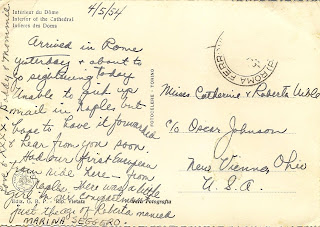 Interieur du Dôme
Interior of the Cathedral
Inneres des Doms
4/5/54
Arrived in Rome
yesterday & about to
go sightseeing today
Unable to pick up
mail in Naples but
hope to have it forwarded
& hear from you soon.
Had our first European
train ride here - from
Naples. There was a little
girl in our compartment
just the age of Roberta named
MARINA SEGGERO.
Love XXXX Daddy & Mommie
ROMA FERR
Misses Catherine & Roberta
c/o Oscar Johnson
New Vienna, Ohio
U.S.A.
FOTOCELERE - TORINO
Vera Fotografia